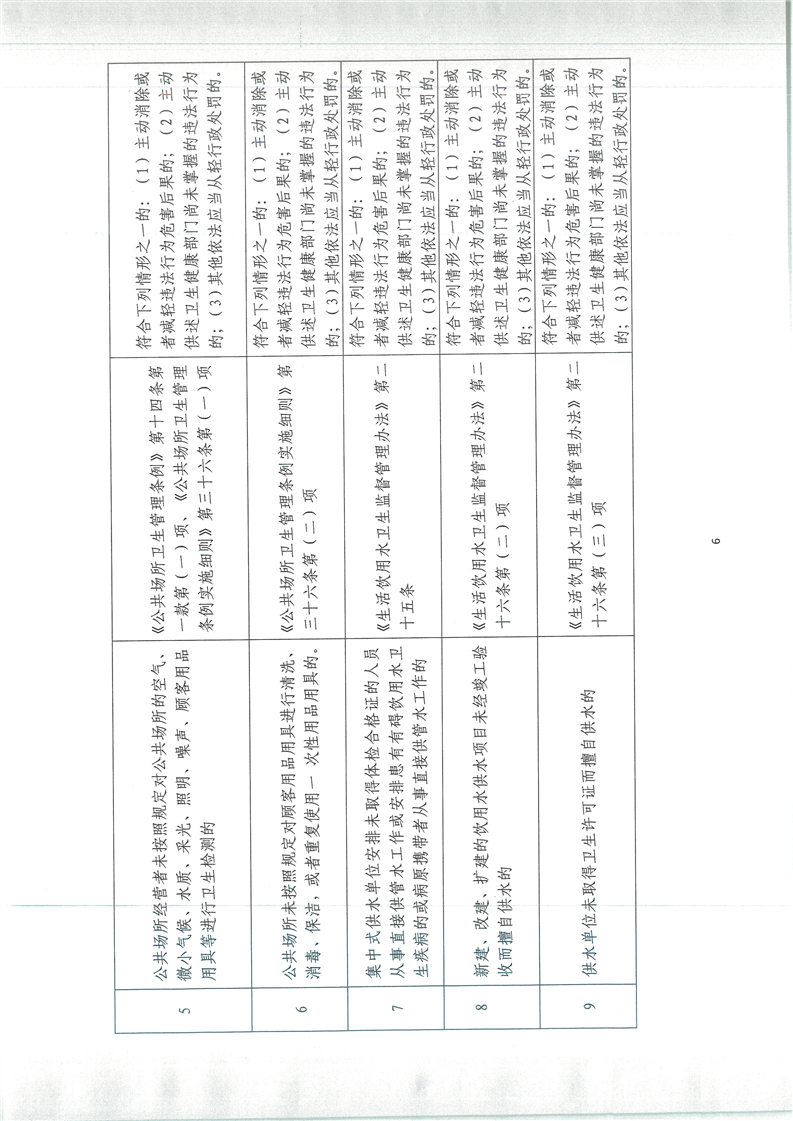 5
公共场所经营者未按照规定对公共场所的空气、
微小气候、水质、采光、照明、噪声、顾客用品
用具等进行卫生检测的
《公共场所卫生管理条例》第十四条第
一款第（一）项、《公共场所卫生管理
条例实施细则》第三十六条第（一）项
符合下列情形之一的：（1）主动消除或
者减轻违法行为危害后果的；（2）主动
供述卫生健康部门尚未掌握的违法行为
的；（3）其他依法应当从轻行政处罚的。
6
公共场所未按照规定对顾客用品用具进行清洗、
消毒、保洁，或者重复使用一 次性用品用具的。
《公共场所卫生管理条例实施细则》第
三十六条第（二）项
符合下列情形之一的：（1）主动消除或
者减轻违法行为危害后果的；（2）主动
供述卫生健康部门尚未掌握的违法行为
的；（3）其他依法应当从轻行政处罚的。
7
集中式供水单位安排未取得体检合格证的人员
从事直接供管水工作或安排患有有碍饮用水卫
生疾病的或病原携带者从事直接供管水工作的
《生活饮用水卫生监督管理办法》第二
十五条
符合下列情形之一的：（1）主动消除或
者减轻违法行为危害后果的；（2）主动
供述卫生健康部门尚未掌握的违法行为
的；（3）其他依法应当从轻行政处罚的。
8
新建、改建、扩建的饮用水供水项目未经竣工验
收而擅自供水的
《生活饮用水卫生监督管理办法》第二
十六条第（二）项
符合下列情形之一的：（1）主动消除或
者减轻违法行为危害后果的；（2）主动
供述卫生健康部门尚未掌握的违法行为
的；（3）其他依法应当从轻行政处罚的。
9
供水单位未取得卫生许可证而擅自供水的
《生活饮用水卫生监督管理办法》第二
十六条第（三）项
符合下列情形之一的：（1）主动消除或
者减轻违法行为危害后果的；（2）主动
供述卫生健康部门尚未掌握的违法行为
的；（3）其他依法应当从轻行政处罚的。
6